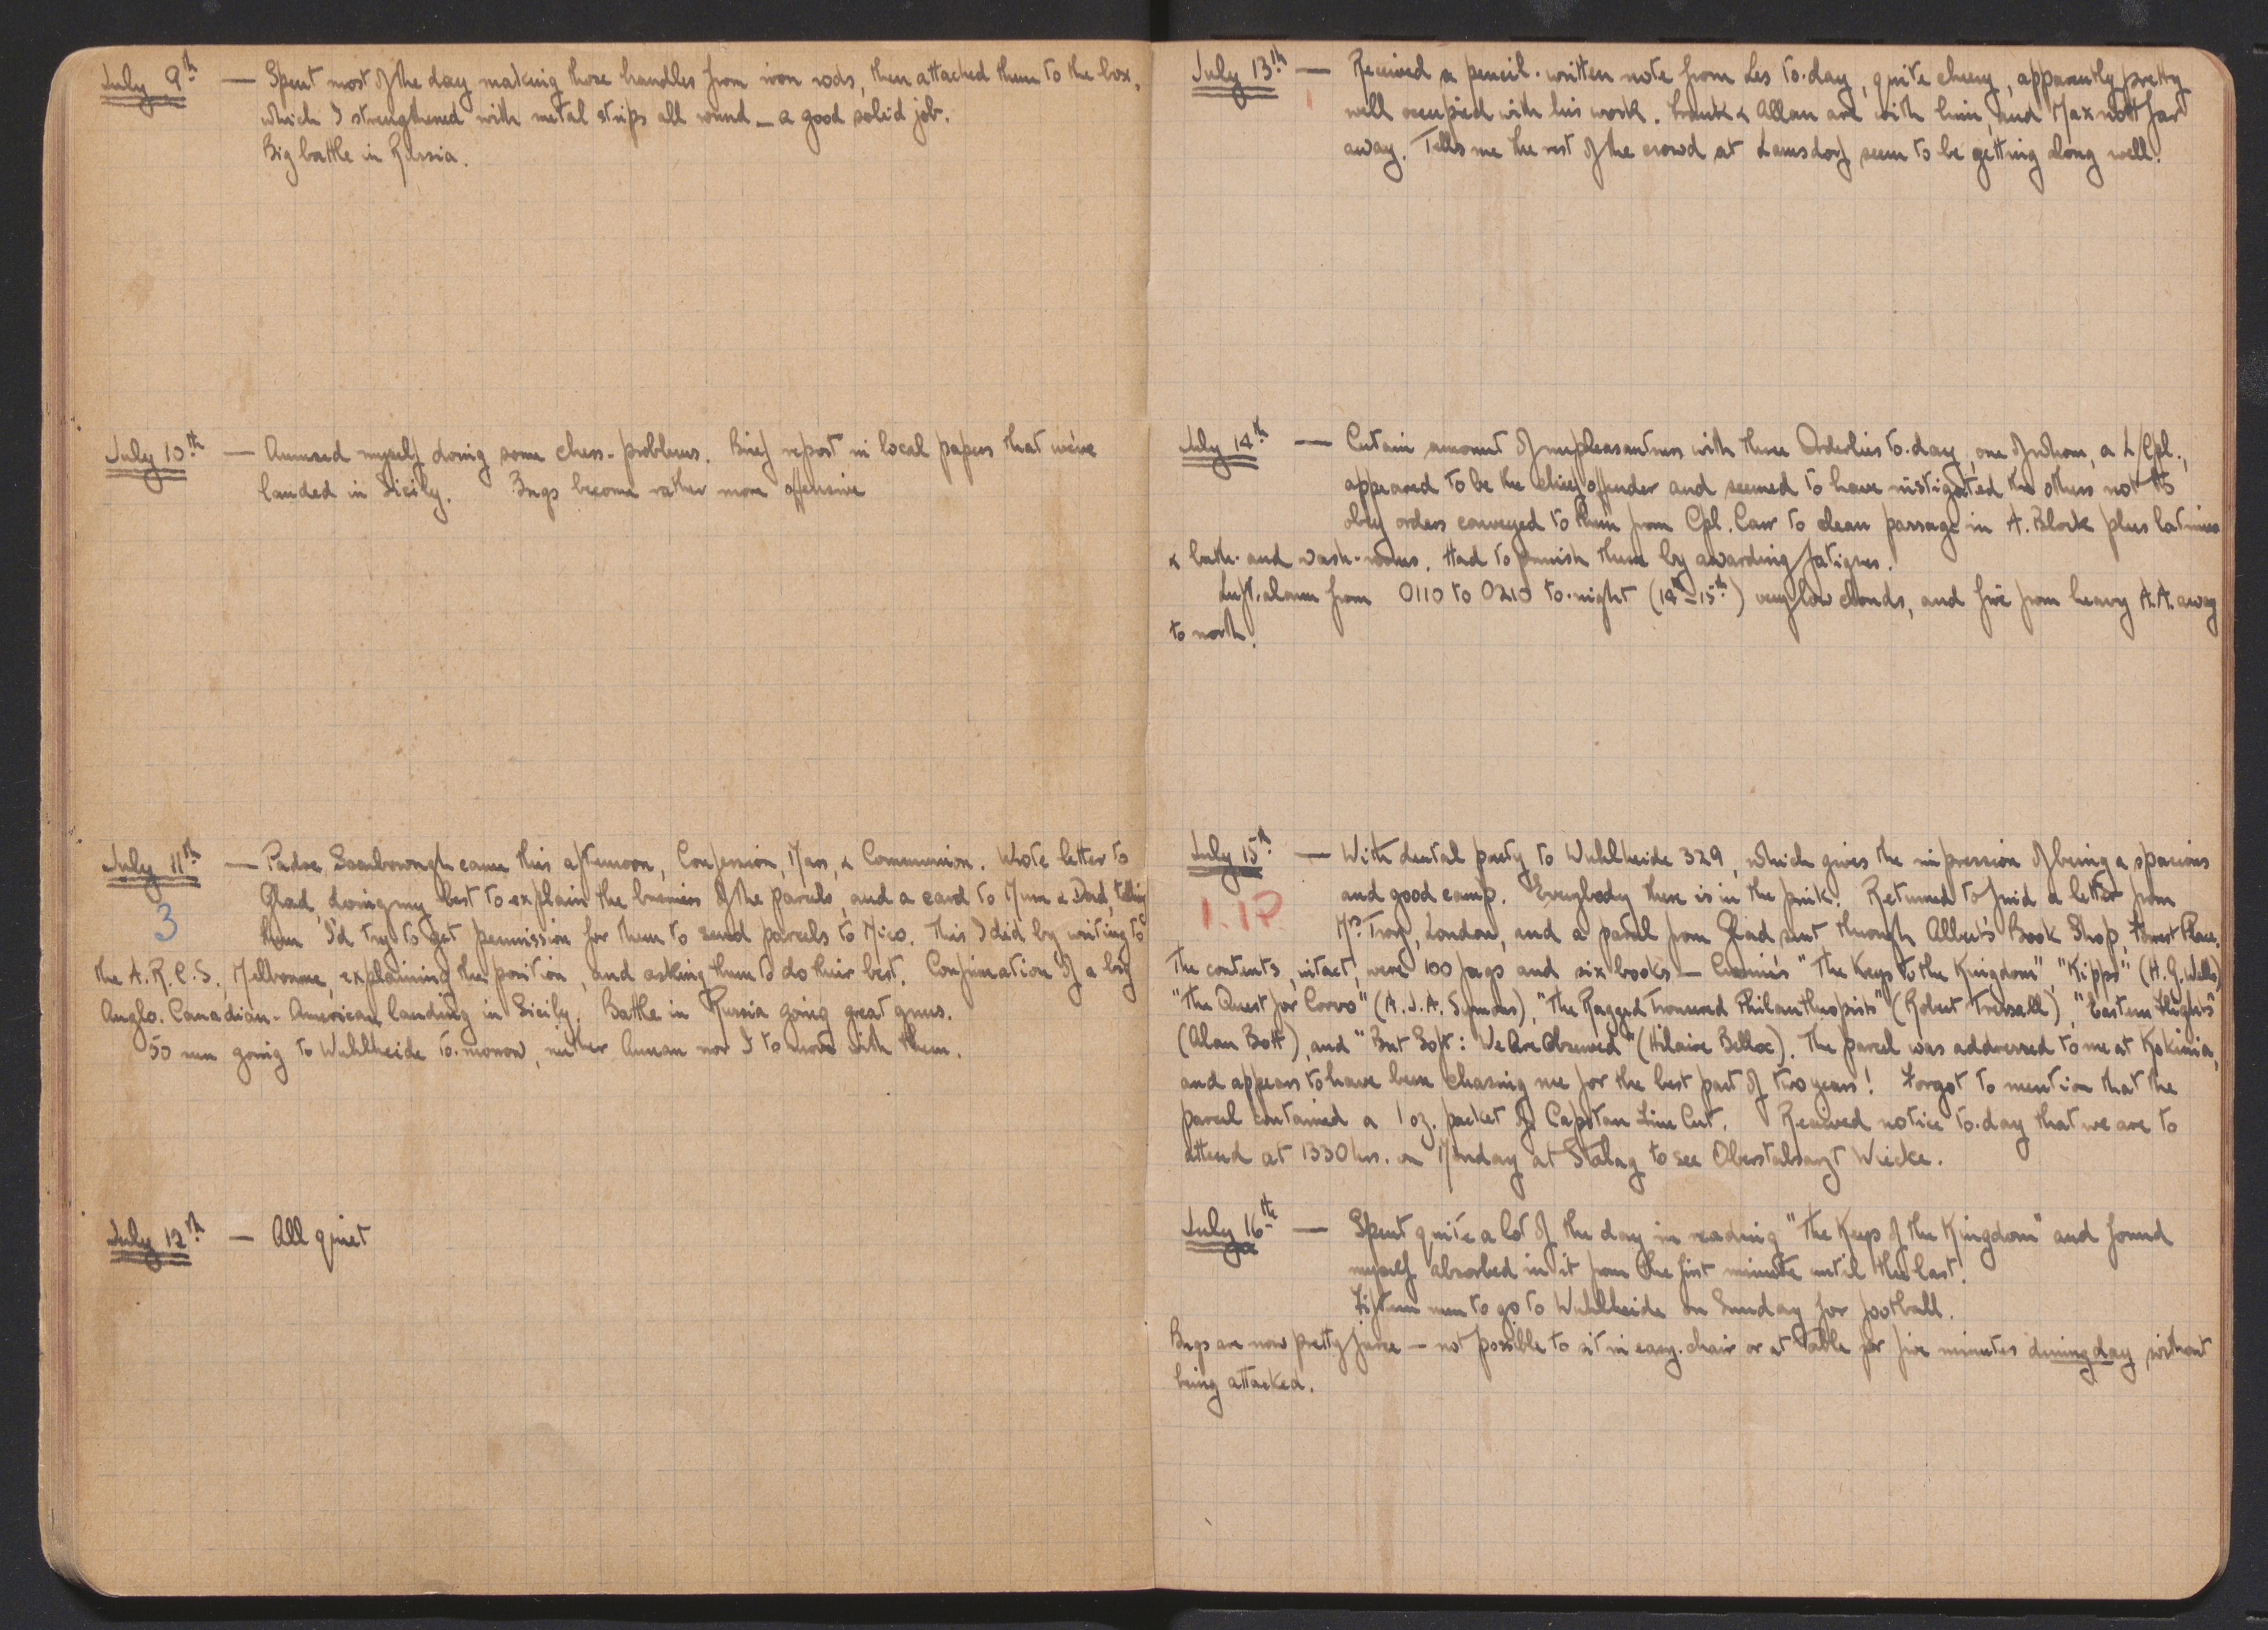 July 9th — Spent most of the day making those handles from iron rods, then attached them to the box,
which I strengthened with metal strips all round – a good solid job.
Big battle in Russia.
July 10th — Amused myself doing some chess-problems. Brief report in local papers that we've
landed in Sicily. Bugs become rather more offensive
July 11th — Padre Scarborough came this afternoon, Confession, Mass, & Communion. Wrote letter to
3
Glad, doing my best to explain the business of the parcels, and a card to Mum & Dad, telling
them I'd try to get permission for them to send parcels to Mico. This I did by writing to
the A.R.C.S., Melbourne, explaining the position, and asking them to do their best. Confirmation of a big
Anglo-Canadian-American landing in Sicily. Battle in Russia going great guns.
50 men going to Wuhlheide to-morrow, neither Annan nor I to move with them.
July 12th — All quiet
July 13th — Received a pencil-written note from Les to-day, quite cheery, apparently pretty
well occupied with his work. Frank & Allan are with him, and Max not far
away. Tells me the rest of the crowd at Lamsdorf seem to be getting along well.
July 14th — Certain amount of unpleasantness with three Orderlies to-day, one of whom, a L/Cpl.,
appeared to be the chief offender and seemed to have instigated the others not to
obey orders conveyed to them from Cpl. Carr to clean passage in A. Block plus latrines
& bath- and wash-rooms. Had to punish them by awarding fatigues.
Luft-alarm from 0110 to 0210 to-night (14th-15th) very low clouds, and fire from heavy A.A. away
to north.
July 15th — With dental party to Wuhlheide 329, which gives the impression of being a spacious
1. 1P
and good camp. Everybody there is in the pink. Returned to find a letter from
Mrs Troy, London, and a parcel from Glad sent through Albert's Book Shop, Forrest Place.
The contents, intact, were 100 fags and six books – Cronin's "The Keys to the Kingdom", "Kipps" (H.G. Wells)
"The Quest for Corvo" (A.J.A. Symons), "The Ragged Trousered Philanthropists" (Robert Tressall), "Eastern Flights"
(Alan Bott), and "But Soft: We Are Observed" (Hilaire Belloc). The parcel was addressed to me at Kokinia,
and appears to have been chasing me for the best part of two years! Forgot to mention that the
parcel contained a 1 oz. packet of Capstan Fine Cut. Received notice to-day that we are to
attend at 1330 hrs. on Monday at Stalag to see Oberstabsarzt Wiecke.
July 16th — Spent quite a lot of the day in reading "The Keys of the Kingdom" and found
myself absorbed in it from the first minute until the last.
Fifteen men to go to Wuhlheide on Sunday for football.
Bugs are now pretty fierce – not possible to sit in easy-chair or at table for five minutes during day without
being attacked.